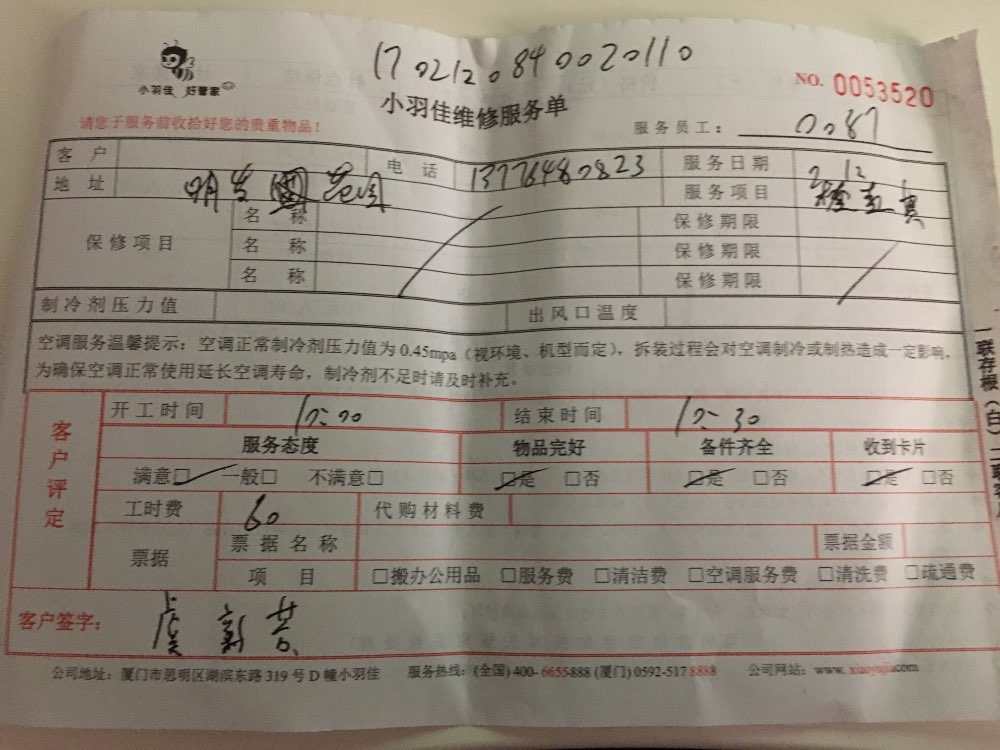 1702120840020110
小羽佳 好管家
NO. 0053520
小羽佳维修服务单
请您于服务前收拾好您的贵重物品！
服务员工： 0087
客户 电话 13776480823 服务日期 2.12
地址 明发 花园 服务项目
保修项目 名称 保修期限
名称 保修期限
名称 保修期限
制冷剂压力值 出风口温度
空调服务温馨提示：空调正常制冷剂压力值为 0.45mpa（视环境、机型而定），拆装过程会对空调制冷或制热造成一定影响，
为确保空调正常使用延长空调寿命，制冷剂不足时请及时补充。
客户评定
开工时间 结束时间
服务态度 物品完好 备件齐全 收到卡片
满意□ 一般□ 不满意□ □是 □否 □是 □否 □是 □否
工时费 60 代购材料费
票据 票据名称 票据金额
项目 □搬办公用品 □服务费 □清洁费 □空调服务费 □清洗费 □疏通费
客户签字： 虞
公司地址：厦门市思明区湖滨东路 319 号 D 幢小羽佳 服务热线：(全国) 400-6655-888 (厦门) 0592-517 8888 公司网站：www.xiaoyujia.com
一联存根（白）